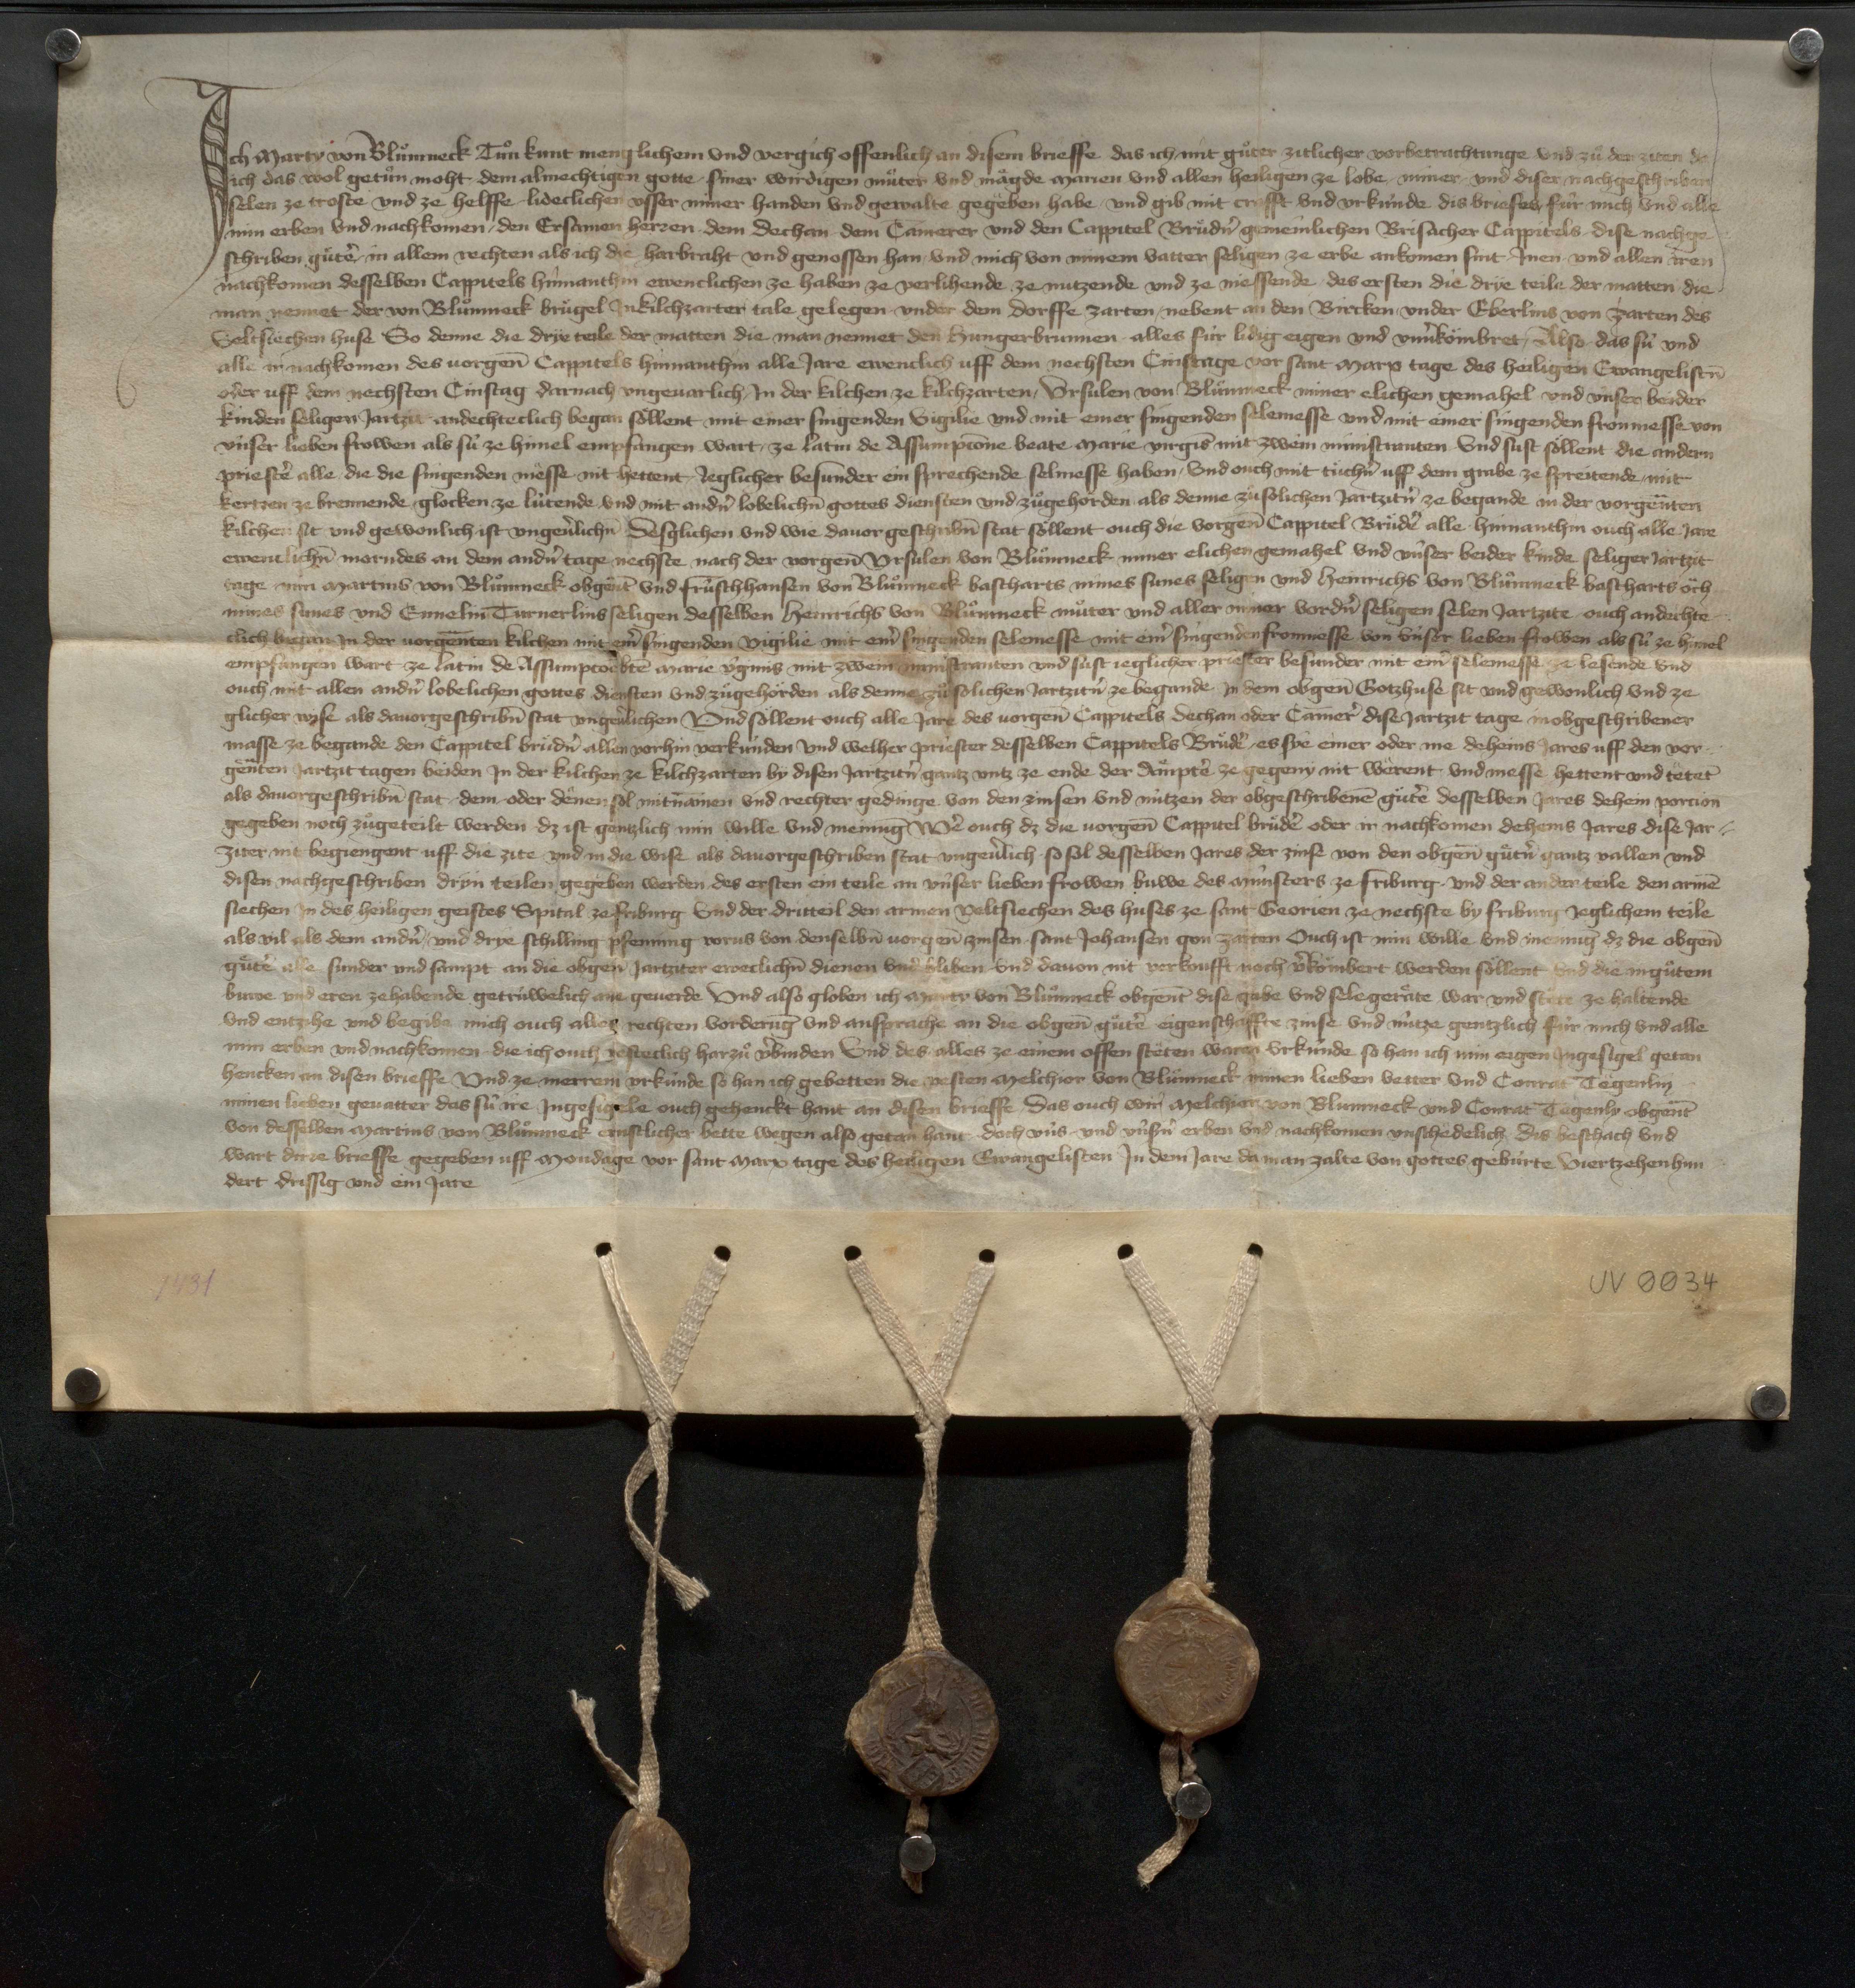 Ich Marty von Blůmneck Tůn kunt menglichem vnd vergich offenlich an disem brieffe das ich mit gůter zitlicher vorbetrachtunge vnd zů der ziten do
ich das wol getůn moht dem almechtigen gotte siner wirdigen můter vnd mägde Marien vnd allen heiligen ze lobe miner vnd diser nachgeschriben
selen ze troste vnd ze helffe lideclichen vsser miner handen vnd gewalte gegeben habe vnd gib mit crafft vnd vrkúnde dis briefes fúr mich vnd alle
min erben vnd nachkomen den Ersamen herren dem Dechan dem Camerer vnd den Cappitel Brůdn̄ gemeinlichen Brisacher Cappitels dise nachge
schriben gůter̄ in allem rechten als ich die harbraht vnd genossen han vnd mich von minem vatter seligen ze erbe ankomen sint Inen vnd allen iren
nachkomen desselben Cappitels hinnanthin ewenclichen ze haben ze verlihende ze nutzende vnd ze niessende des ersten die drÿe teile der matten die
man nennet der von Blůmneck brúgel In kilchzarter tale gelegen vnder dem dorffe zarten nebent an den Bircken vnder Eberlins von zarten des
Veltsiechen huse So denne die drÿe teile der matten die man nennet den Hungerbrunnen alles fúr lidig eigen vnd vnu̍kömbret Also das sú vnd
alle ir nachkomen des vorgen̄ Cappitels hinnanthin alle Jare ewenclich uff dem nechsten Cinstage vor sant Marx tage des heiligen Ewangelistn̄
oder uff dem nechsten Cinstag darnach vngeuarlich In der kilchen ze kilchzarten Vrsulen von Blůmneck miner elichen gemahel vnd vnser beider
kinden seligen Jartzit andechteclich began söllent mit einer singenden Vigilie vnd mit einer singenden selemesse vnd mit einer singenden fronmesse von
vnser lieben frowen als sú ze himel empfangen wart ze latin de Assumpcōne beate Marie virgīs mit zwein ministranten Vnd sust söllent die andern
priester̄ alle die die singenden messe nit hettent Jeglicher besunder ein sprechende selmesse haben Vnd ouch mit tůchn̄ uff dem grabe ze spreitende mit
kertzen ze brennende glocken ze lútende vnd mit andn̄ lobelichn̄ gottes diensten vnd zůgehörden als denne zů solichen Jartzitn̄ ze begande in der vorgen̄ten
kilchen sit vnd gewonlich ist vngeu̍lichn̄ Desglichen vnd wie dauor geschribn̄ stat söllent ouch die vorgen̄ Cappitel Brůder̄ alle hinnanthin ouch alle Jare
ewenclichn̄ morndes an dem andn̄ tage nechste nach der vorgen̄ Vrsulen von Blůmneck miner elichen gemahel vnd vnser beider kinde seliger Jartzit
tage min Martins von Blůmneck obgent̄ vnd Frúschhansen von Blůmneck bastharts mines sunes seligen vnd Heinrichs von Blůmneck bastharts öch
mines sunes vnd Ennelin Turnerlins seligen desselben Heinrichs von Blůmneck můter vnd aller miner vordn̄ seligen selen Jartzite ouch andechte
clich began In der vorgen̄ten kilchen mit ein̄ singenden vigilie mit ein̄ singenden selemesse mit ein̄ singenden fronmesse von vnser lieben frowen als sú ze himel
empfangen wart ze latin de Assumpcōe bt̄e Marie v̓ginis mit zwein ministranten vnd sust ieglicher priester besunder mit ein̄ selemesse ze lesende vnd
ouch mit allen andn̄ lobelichen gottes diensten vnd zůgehörden als denne zů solichen Jartzitn̄ ze begande in dem obgen̄ Gotzhuse sit vnd gewonlich vnd ze
glicher wyse als dauorgeschribn̄ stat vngeu̍lichen Vnd söllent ouch alle Jare des vorgen̄ Cappitels dechan oder Camer̄ dise Jartzit tage in obgeschribener
masse ze begande den Cappitel brůdn̄ allen vorhin verkúnden vnd welher priester desselben Cappitels Brůder̄ es sye einer oder me deheins Jares uff den vor
gen̄ten Jartzit tagen beiden In der kilchen ze kilchzarten by disen Jartzitn̄ gantz vntz ze ende der Ämpter̄ ze gegeny nit werent vnd messe hettent vnd tetet̄
als dauorgeschribn̄ stat dem oder denen sol mitnamen vnd rechter gedinge von den zinsen vnd nútzen der obgeschribenē gůter̄ desselben Jares dehein porcion
gegeben noch zůgeteilt werden dz ist gentzlich min wille vnd meinung Wer̄ ouch dz die vorgen̄ Cappitel brůder̄ oder ir nachkomen deheins Jares dise Jar
ziter nit begiengent uff die zite vnd in die wise als dauorgeschriben stat vngeu̍lich so sol desselben Jares der zinse von den obgen̄ gůtn̄ gantz vallen vnd
disen nachgeschriben drÿn teilen gegeben werden des ersten ein teile an vnser lieben frowen buwe des Múnsters ze friburg vnd der ander teile den armē
siechen in des heiligen geistes Spital ze friburg Vnd der dritteil den armen veltsiechen des huses ze sant Georien ze nechste by friburg Jeglichem teile
als vil als dem andn̄ vnd drye schilling pfenning vorus von denselbn̄ vorgen̄ zinsen sant Johansen gon zarten Ouch ist min wille vnd meinung dz die obgen̄
gůter̄ alle sunder vnd sampt an die obgen̄ Jartziter eweclichn̄ dienen vnd bliben vnd dauon nit verkoufft noch v̓kömbert werden söllent vnd die in gůtem
buwe vnd eren ze habende getrúwelich ane geuerde Vnd also globen ich Marty von Blůmneck obgent̄ dise gabe vnd selegeräte war vnd stete ze haltende
vnd entzihe vnd begibe mich ouch alles rechten vorderung vnd ansprache an die obgen̄ gůter̄ eigenschaffte zinse vnd nútze gentzlich fúr mich vnd alle
min erben vnd nachkomen die ich ouch vesteclich harzů v̓binden Vnd des alles ze einem offen steten waren vrkúnde so han ich min eigen Ingesigel getan
hencken an disen brieffe Vnd ze merrem vrkúnde so han ich gebetten die vesten Melchior von Blůmneck minen lieben vetter vnd Conrat Tegenlin
minen lieben geuatter das sú ire Ingesigele ouch gehenckt hant an disen brieffe Das ouch wir Melchior von Blumneck vnd Conrat Tegenly obgent̄
von desselben Martins von Blůmneck ernstlicher bette wegen also getan hant doch vns vnd vnsn̄ erben vnd nachkomen vnschedelich Dis beschach vnd
wart dirre brieffe gegeben uff Mondage vor sant Marx tage des heiligen Ewangelisten In dem Jare da man zalte von gottes gebúrte Viertzehenhun
dert drissig vnd ein Jare
6
1431
UV 0034